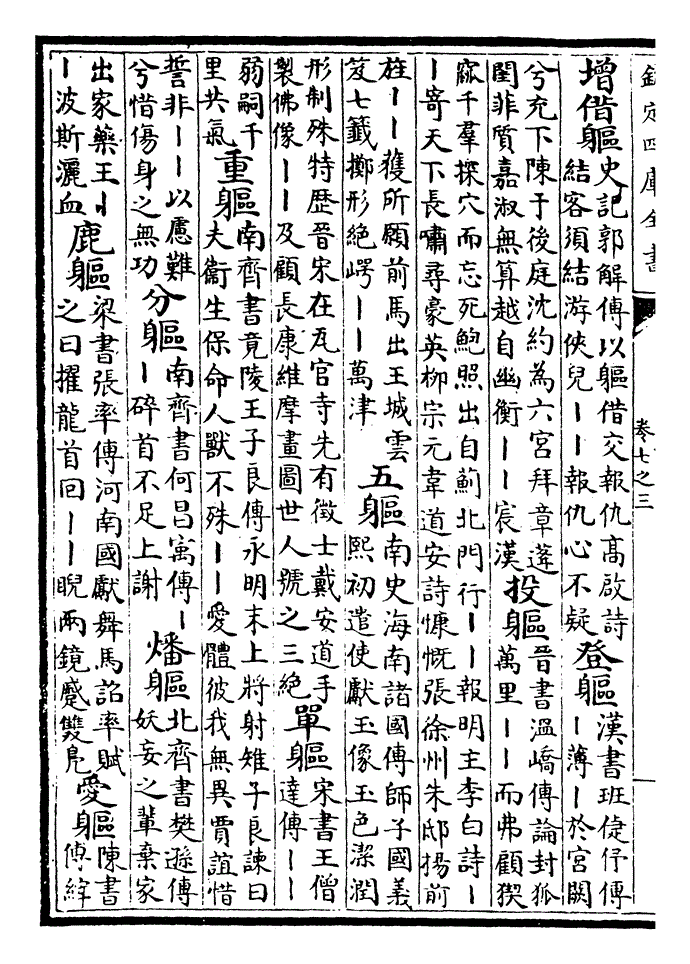 欽定四庫全書
卷七之三
增借軀史記郭解傳以軀借交報仇高啟詩
結客須結游俠兒丨丨報仇心不疑
登軀漢書班倢伃傳
丨薄丨於宮闕
兮充下陳于後庭沈約為六宮拜章邃
閨菲質嘉淑無算越自幽衡丨丨宸漢
投軀晉書溫嶠傳論封狐
萬里丨丨而弗顧猰
窳千羣探穴而忘死鮑照出自薊北門行丨丨報明主李白詩丨
丨寄天下長嘯尋豪英柳宗元韋道安詩慷慨張徐州朱邸揚前
旌丨丨獲所願前馬出王城雲
笈七籤擲形絕崿丨丨萬津
五軀南史海南諸國傳師子國義
熙初遣使獻玉像玉色潔潤
形制殊特歴晉宋在瓦官寺先有徵士戴安道手
製佛像丨丨及顧長康維摩畫圖世人號之三絕
單軀宋書王僧
達傳丨丨
弱嗣千
里共氣
重軀南齊書竟陵王子良傳永明末上將射雉子良諫曰
夫衞生保命人獸不殊丨丨愛體彼我無異賈誼惜
誓非丨丨以慮難
兮惜傷身之無功
分軀南齊書何昌寓傳丨
丨碎首不足上謝
燔軀北齊書樊遜傳
妖妄之輩棄家
出家藥王丨
丨波斯灑血
鹿軀梁書張率傳河南國獻舞馬詔率賦
之曰擢龍首回丨丨睨兩鏡蹙雙鳧
愛軀陳書
傅縡